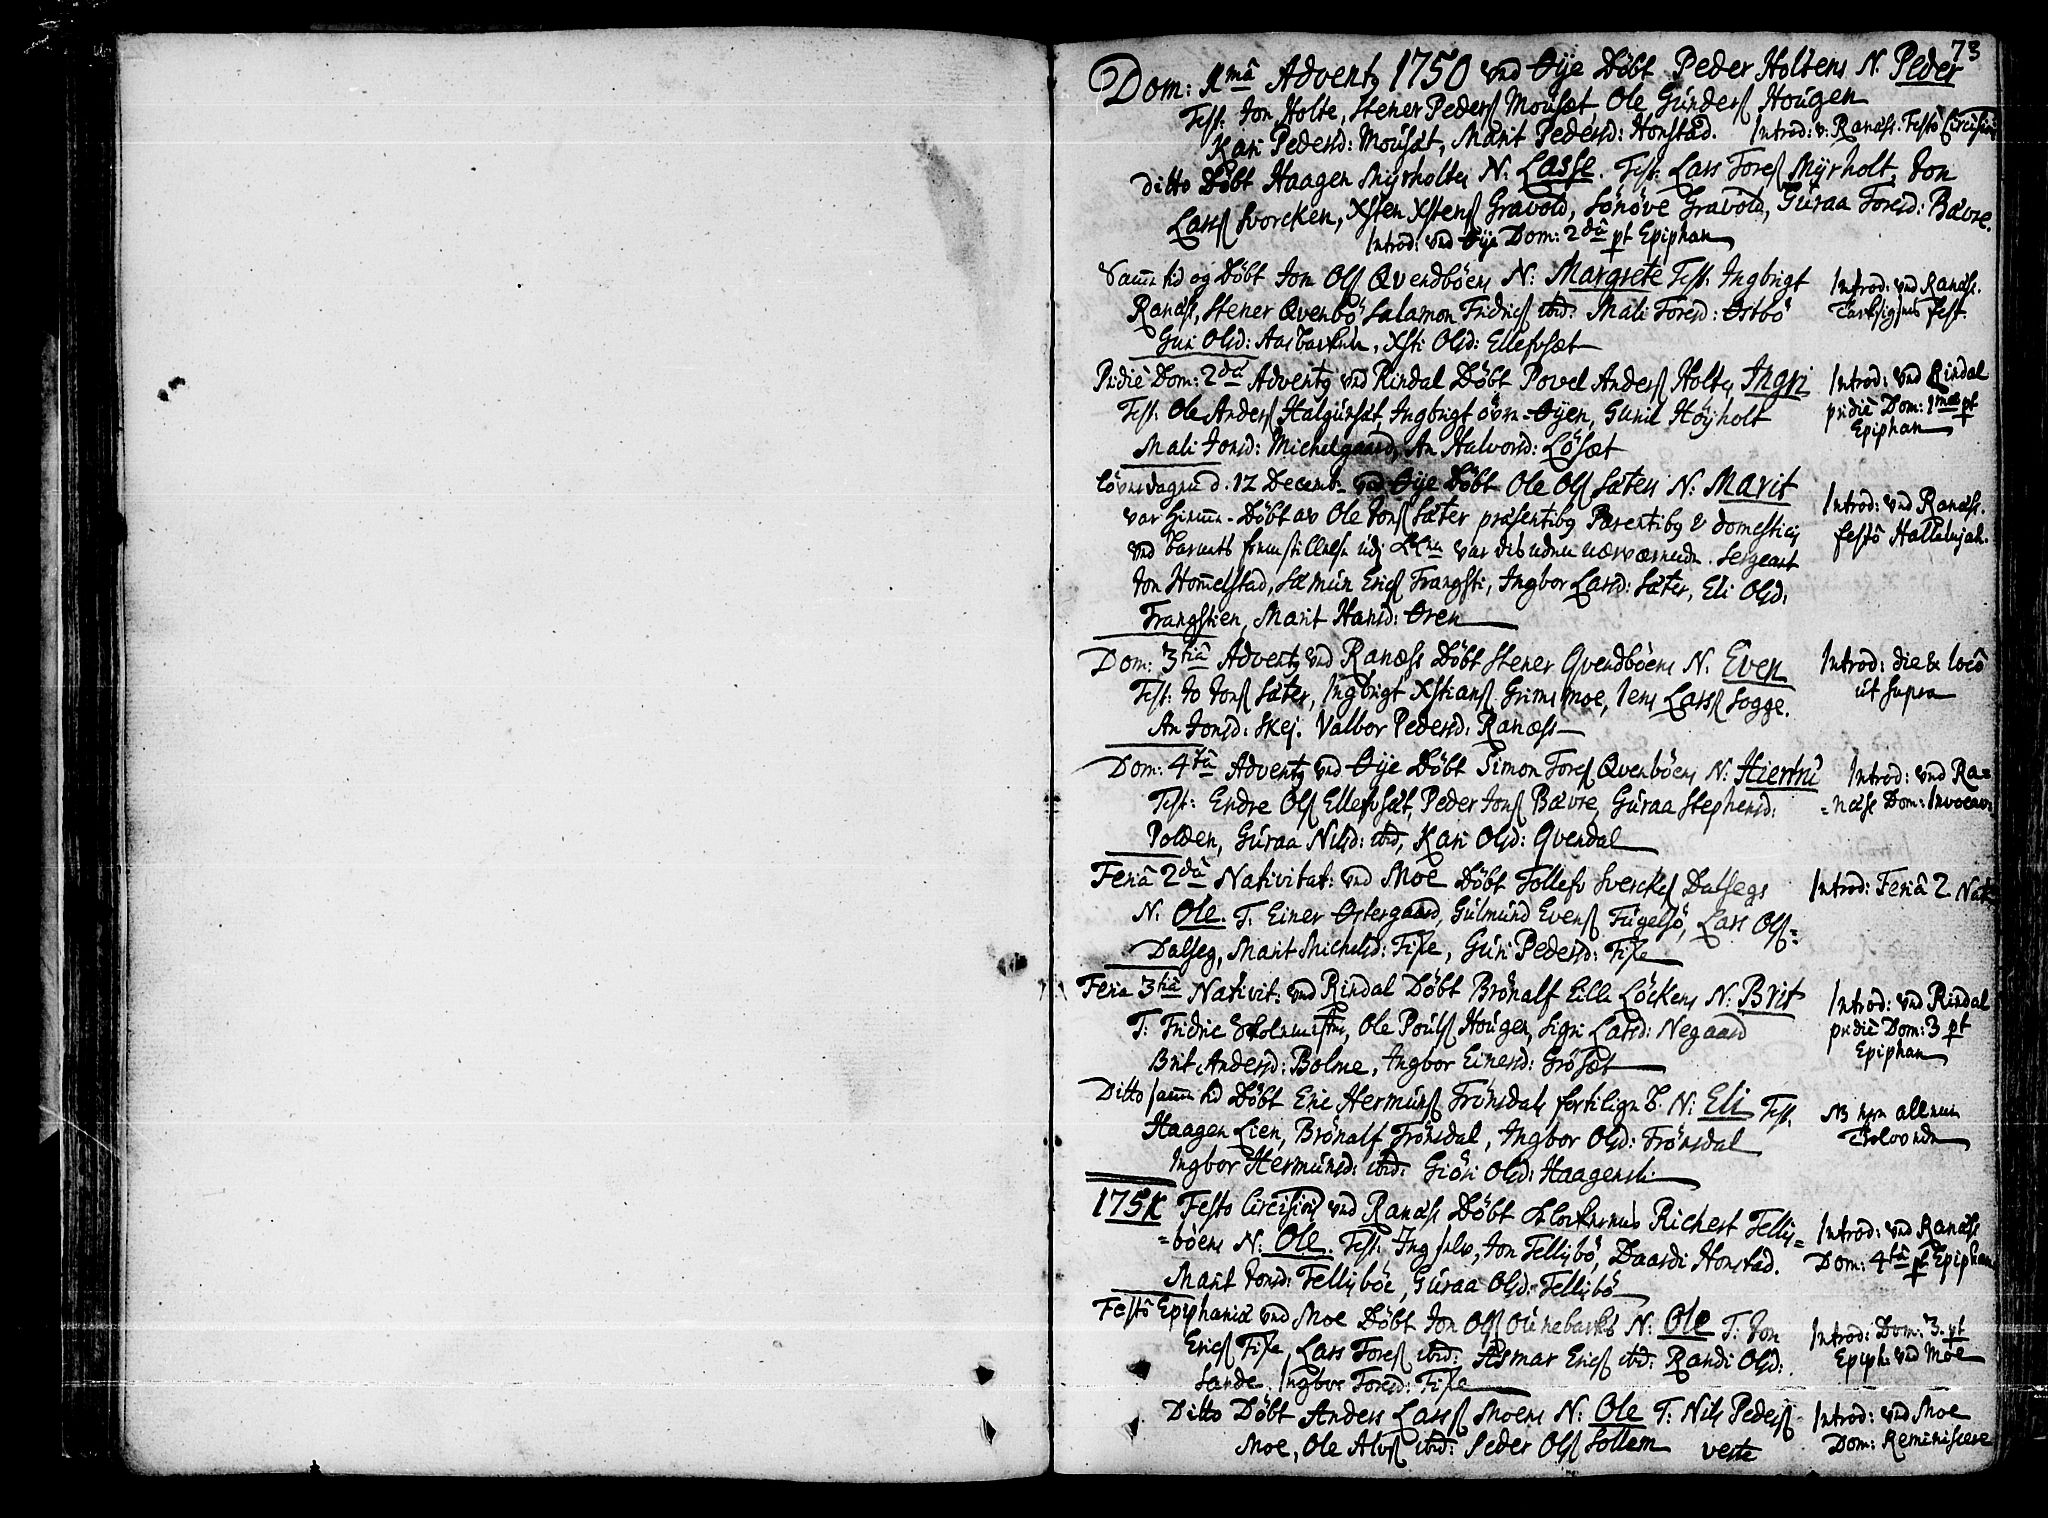 73
Dom: 1mâ Advent 1750 ved Øye Døbt Peder Holtens N. Peder
Test: Jon Holte, Stener Peders Mousæt, Ole Gunders Hougen
Kari Pedersd: Mousæt, Marit Pedersd: Honstad. Introd: v: Ranæss. Festo Circisio
ditto Døbt Haagen Myrholten N: Lasse. Test: Lars Tores Myrholt, Jon
Larss Svorcken, Xsten Xstens Gravold, Sönöve Gravold, Guraa Toresd: Bævre.
Introd: ved Øye Dom: 2dâ pt Epiphan
Samme tid og Døbt Jon Ols Qvendböens N: Margrete Test: Ingbrigt
Ranæss, Stener Qvenbö Salamon Fridrics ibid: Mali Toresd: Ostbö
Guri Olsd: Aasbacken, Xsti Olsd: Ellefsæt
Introd: ved Ranæss.
Tacksigns fest.
Pridie Dom: 2dâ Advent ved Rindal Døbt Povel Anders Holte, Ingri
Test: Ole Anders Halgunsæt, Ingbrigt övre Øyen, Gunil Höyholt
Mali Jonsd: Michelgaard, An Halvorsd: Lösæt
Introd: ved Rindal
pridie Dom: 1mae pt
Epiphan
Löverdagen d. 12 Decemb. ved Øye Døbt Ole Ols Sæters N: Marit
var hiemme-Døbt av Ole Jons Sæter præsentib Parentib & domestici
ved barnets fremstillelse udj var disuden nærværende. Sergeant
Jon Hommelstad, Sæmun Erics Trangsti, Ingbor Larsd: Sæter, Eli Olsd:
Trangstien, Marit Hansd: Øren
Introd: ved Ranæss.
festô Hallelujah.
Dom: 3tiâ Advent ved Ranæss Døbt Stener Qvendböens N: Even
Test: Jo Jons Sæter, Ingbrigt Xstians Grimsmoe, Jens Larss Sogge.
An Jonsd: Skej. Valbor Pedersd: Ranæss
Introd: die & locô
ut supra
Dom: 4tâ Advent ved Øye Døbt Simon Tores Qvenböens N: Hiertru
Test: Endre Ols Ellefsæt, Peder Jons Bævre, Guraa Stephensd:
Polden, Guraa Nilsd: ibid, Kari Olsd: Qvendal
Introd: ved Ra=
=næss Dom: Invocav:
Feriâ 2dâ Nativitat: ved Moe Døbt Tollef Sverckes Dalsegs
N: Ole. T: Einer Østergaard, Gulmund Evens Fugelsö, Lars Ols=
Dalseg, Marit Michelsd: Fixe, Guri Pedersd: Fixe
Introd: Feriâ 2 Nat:
Feria 3tiâ Nativit: ved Rindal Døbt Brönalf Lille Löckens N: Brit
T: Fridric Skolemester, Ole Pouls Hougen, Sigri Larsd: Negaard
Brit Andersd: Bolme, Ingbor Einersd: Grösæt
Introd: ved Rindal
pridie Dom: 3 pt
Epiphan
Ditto samme tid Døbt Eric Hermuns Frönsdals fortilign b. N: Eli Test:
Haagen Lien, Brönalf Frönsdal, Ingbor Olsd: Frönsdal
Ingbor Hermunsd: ibid: Giöri Olsd: Haagensli
NB nyn allene
Trolovede
1751 Festo Circisionis ved Ranæss Døbt Klockerens Richert Telli=
=böens N: Ole. Test: Ing, Jon Tellisbö, Daardi Honstad.
Marit Jonsd: Tellisböe, Guraa Olsd: Tellisbö
Introd: ved Ranæss
Dom: 4tâ pt Epiphan
Festô Epiphaniæ ved Moe Døbt Jon Ols N: Ole T: Jon
Erics Fixe, Lars Tores ibid: Asmar Erics ibid: Randi Olsd:
Sande. Ingbor Toresd: Fixe
Introd: Dom: 3. pt
Epiph: ved Moe
Ditto Døbt Anders Larss Moens N: Ole T: Nils Peders
Moe, Ole Alvs ibid: Peder Ols Sollem verte
Introd: ved Moe
Dom: Reminiscere